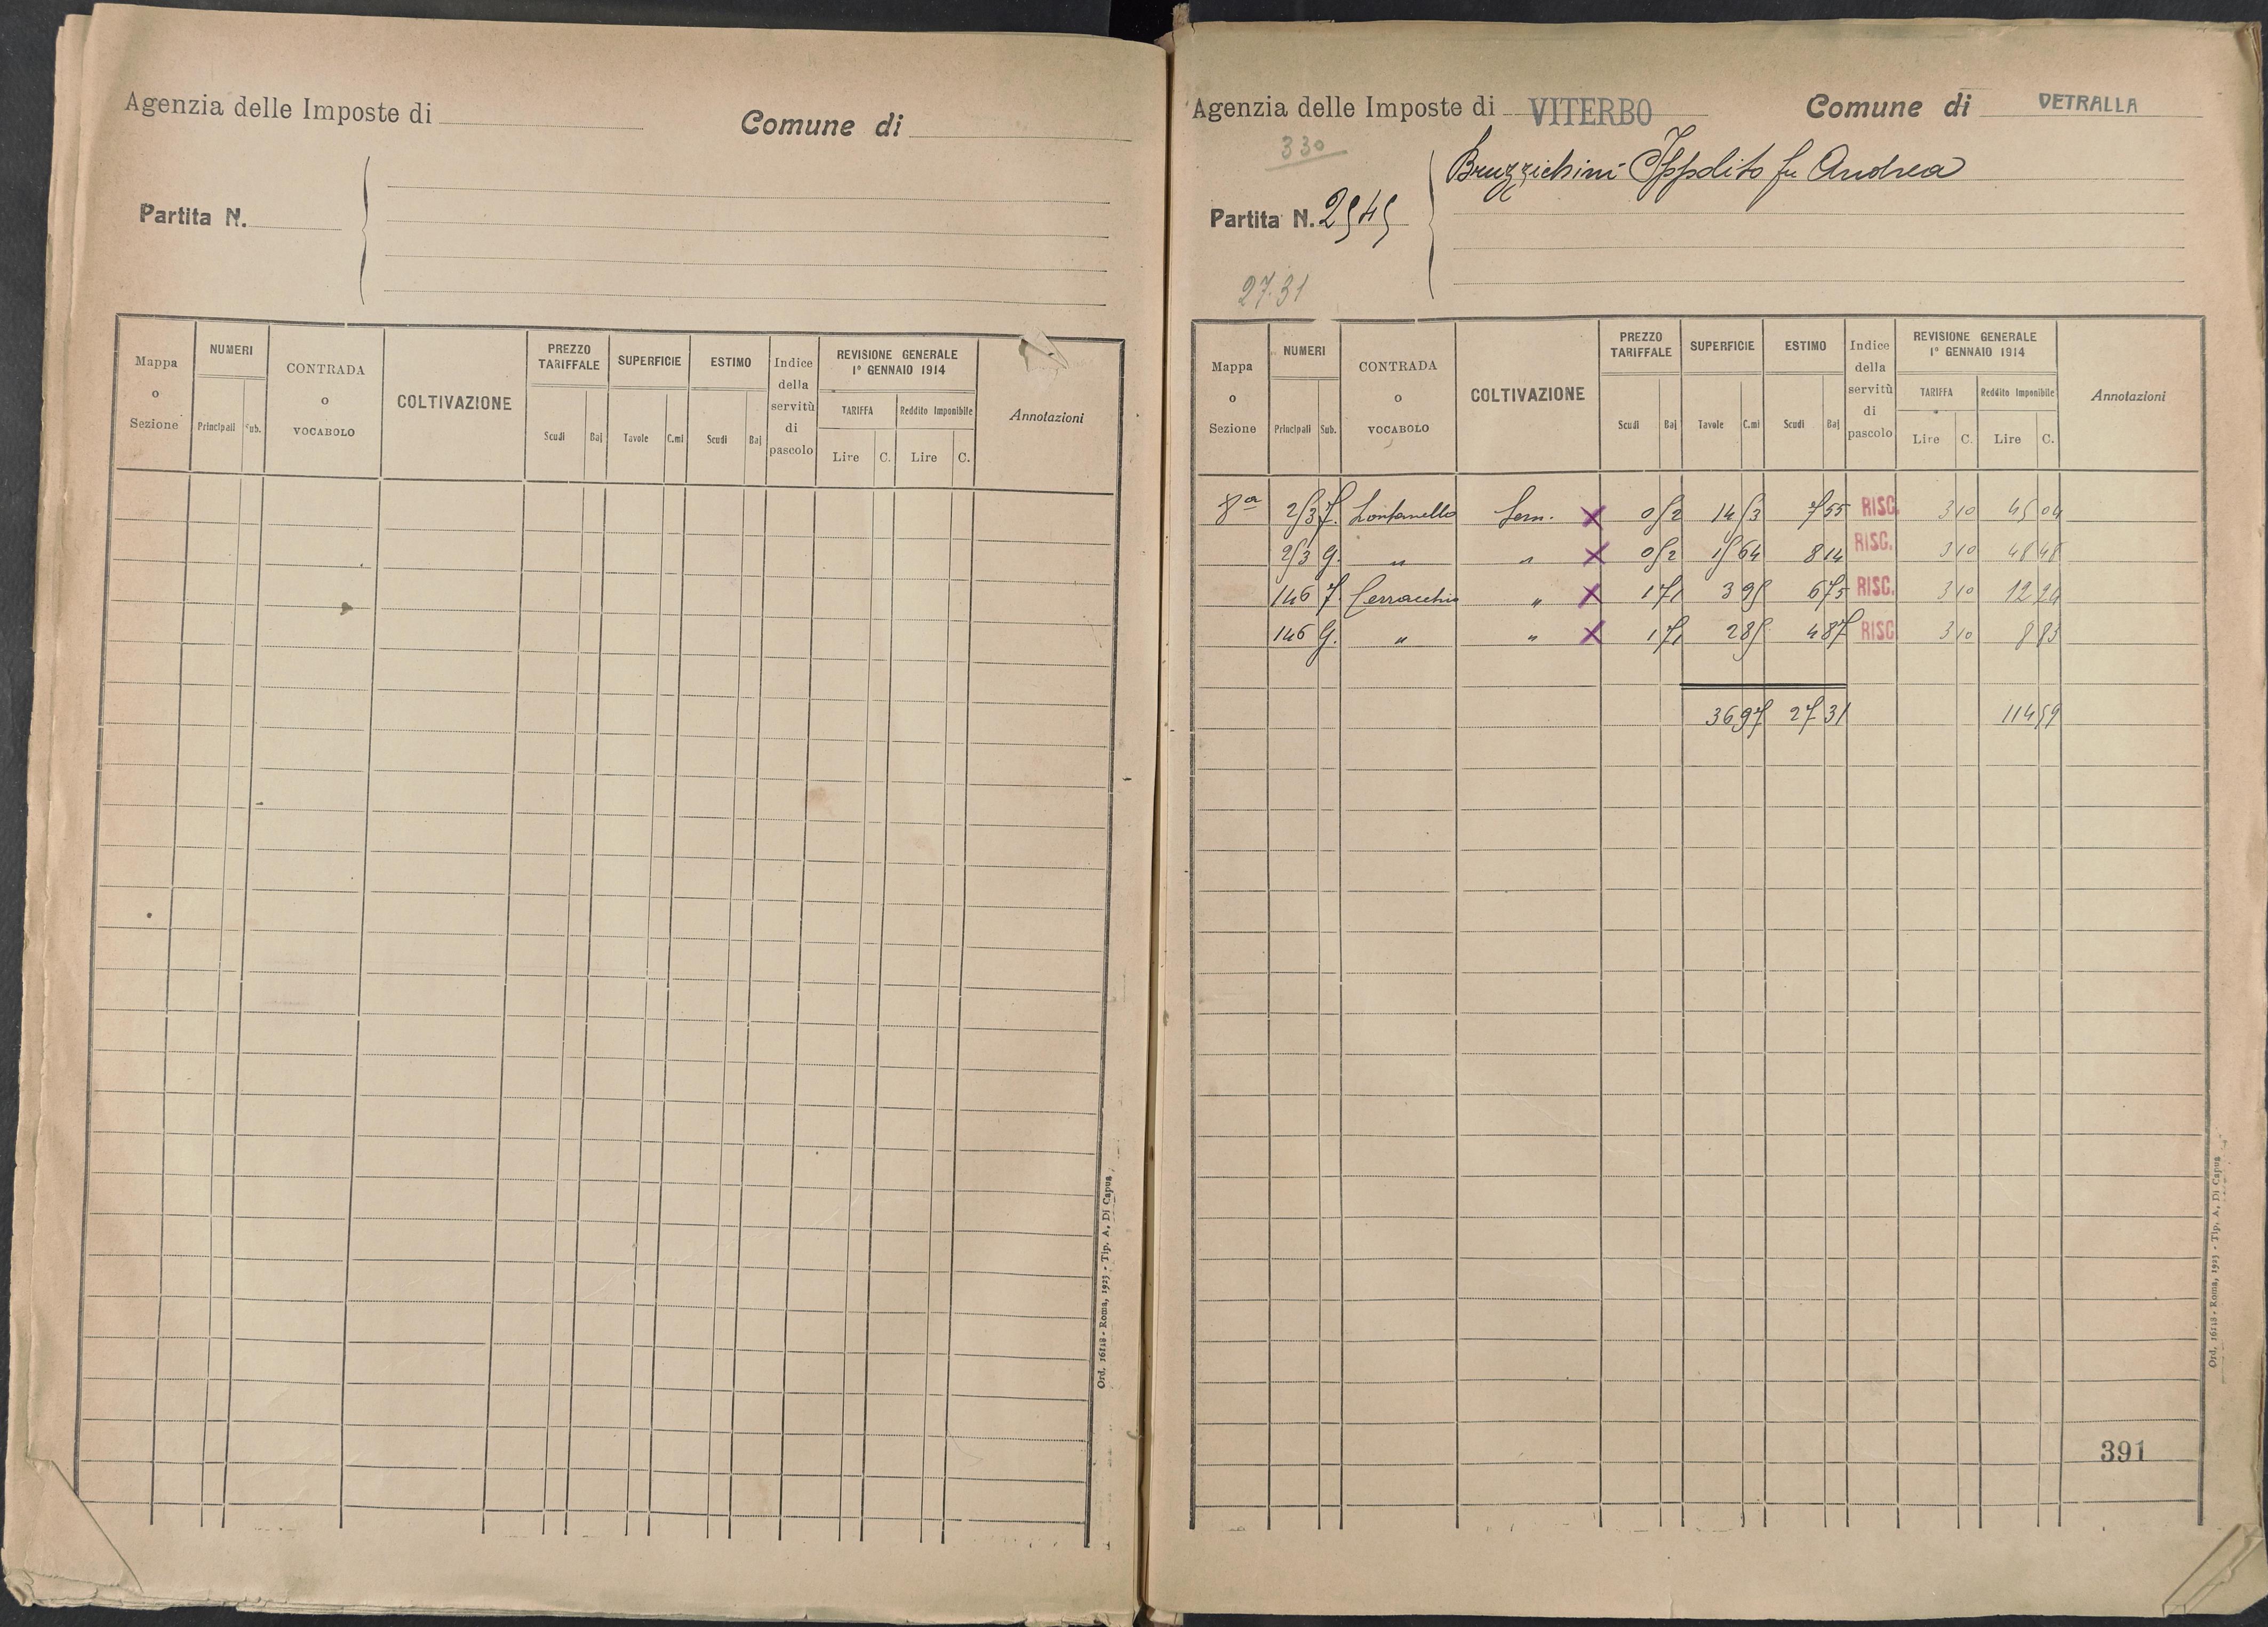 Agenzia delle Imposte di
Comune di
Partita N.
Mappa o Sezione
NUMERI
Principali Sub.
CONTRADA o VOCABOLO
COLTIVAZIONE
PREZZO TARIFFALE
Scudi Baj
SUPERFICIE
Tavole C.mi
ESTIMO
Scudi Baj
Indice della servitù di pascolo
REVISIONE GENERALE
1° GENNAIO 1914
TARIFFA
Lire C.
Reddito Imponibile
Lire C.
Annotazioni
Ord. 16118 - Roma, 1923 - Tip. A. Di Capua
Agenzia delle Imposte di VITERBO
Comune di VETRALLA
330
Bruzzichini Ippolito fu Andrea
Partita N. 2545
27.31
Mappa o Sezione
NUMERI
Principali Sub.
CONTRADA o VOCABOLO
COLTIVAZIONE
PREZZO TARIFFALE
Scudi Baj
SUPERFICIE
Tavole C.mi
ESTIMO
Scudi Baj
Indice della servitù di pascolo
REVISIONE GENERALE
1° GENNAIO 1914
TARIFFA
Lire C.
Reddito Imponibile
Lire C.
Annotazioni
8a 253 F. Sem. X 0 52 14 53 7 55 RISC. 3 10 45 04
253 G. " " X 0 52 15 64 8 14 RISC. 3 10 48 48
146 F. Cerracchio " X 1 71 3 95 6 75 RISC. 3 10 12 24
146 G. " " X 1 71 2 85 4 87 RISC 3 10 8 83
36 97 27 31 114 59
391
Ord. 16118 - Roma, 1923 - Tip. A. Di Capua